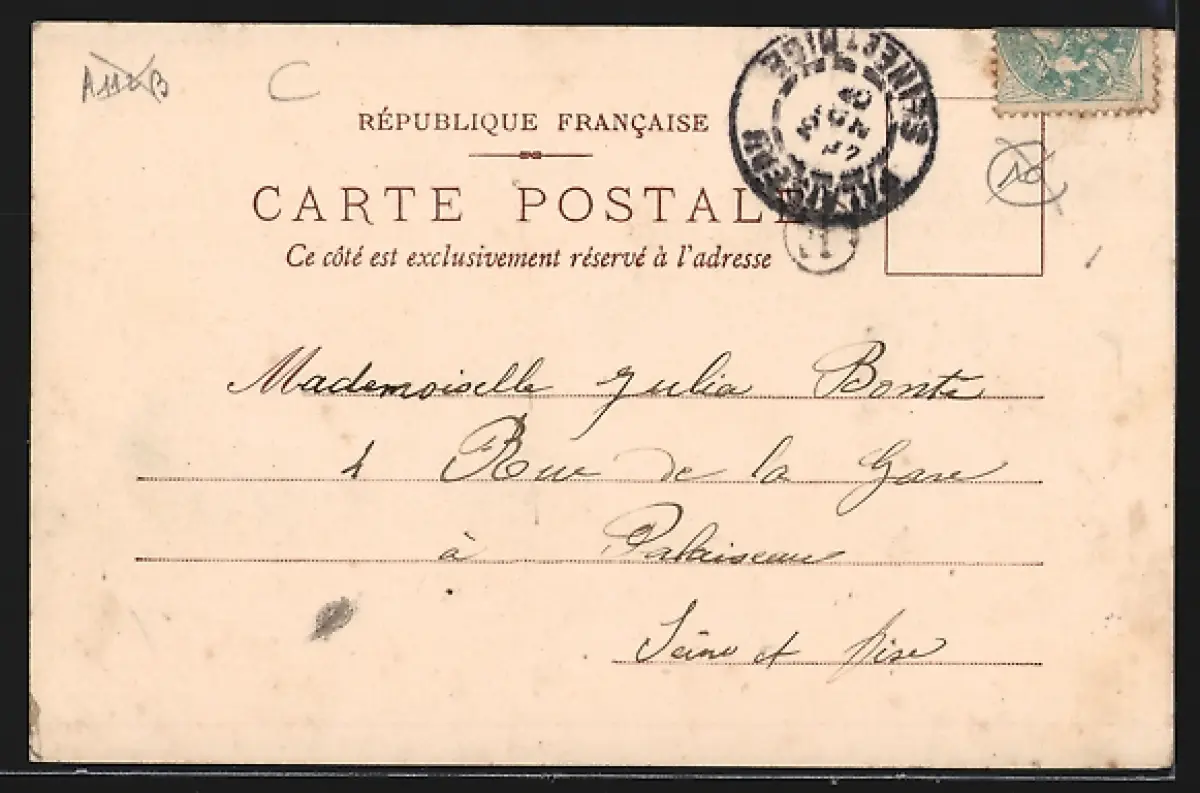 C
RÉPUBLIQUE FRANÇAISE
CARTE POSTALE
Ce côté est exclusivement réservé à l'adresse
PALAISEAU
SEINE ET OISE
Mademoiselle Julia Bonta
Rue de la Gare
à Palaiseau
Seine et Oise